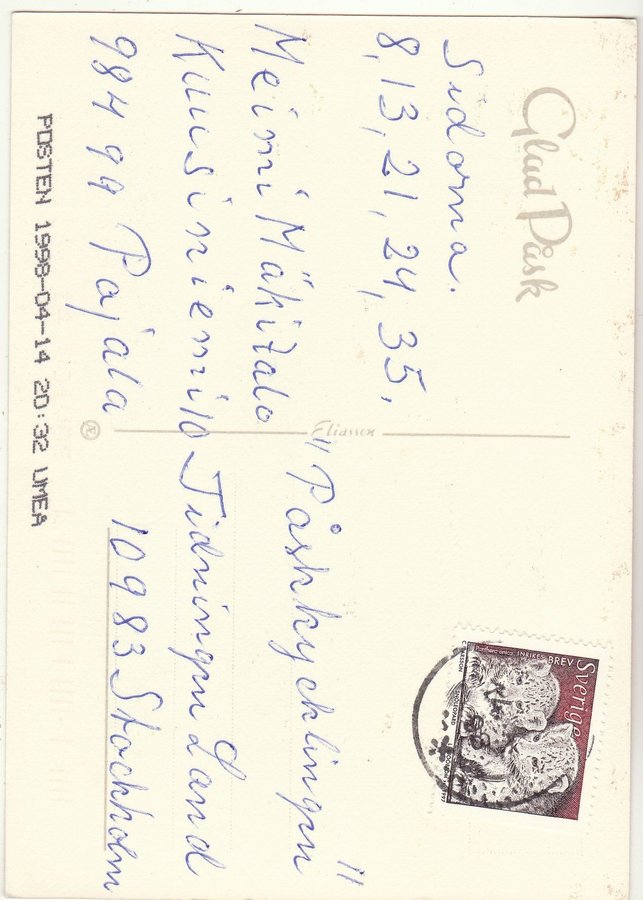 Glad Påsk
Sidorna.
8, 13, 21, 24, 35,
Meimi Mäkitalo
Kuusiniemi 10
984 99 Pajala
Eliasson
"Påskkycklingen"
Tidningen Land
10983 Stockholm
Sverige
INRIKES BREV
Panthera unica
POSTEN 1998-04-14 20:32 UMEA